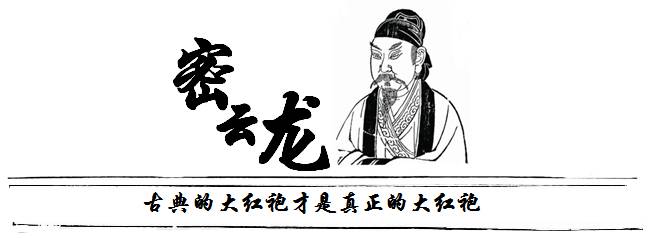 密云龙
古典的大红袍才是真正的大红袍